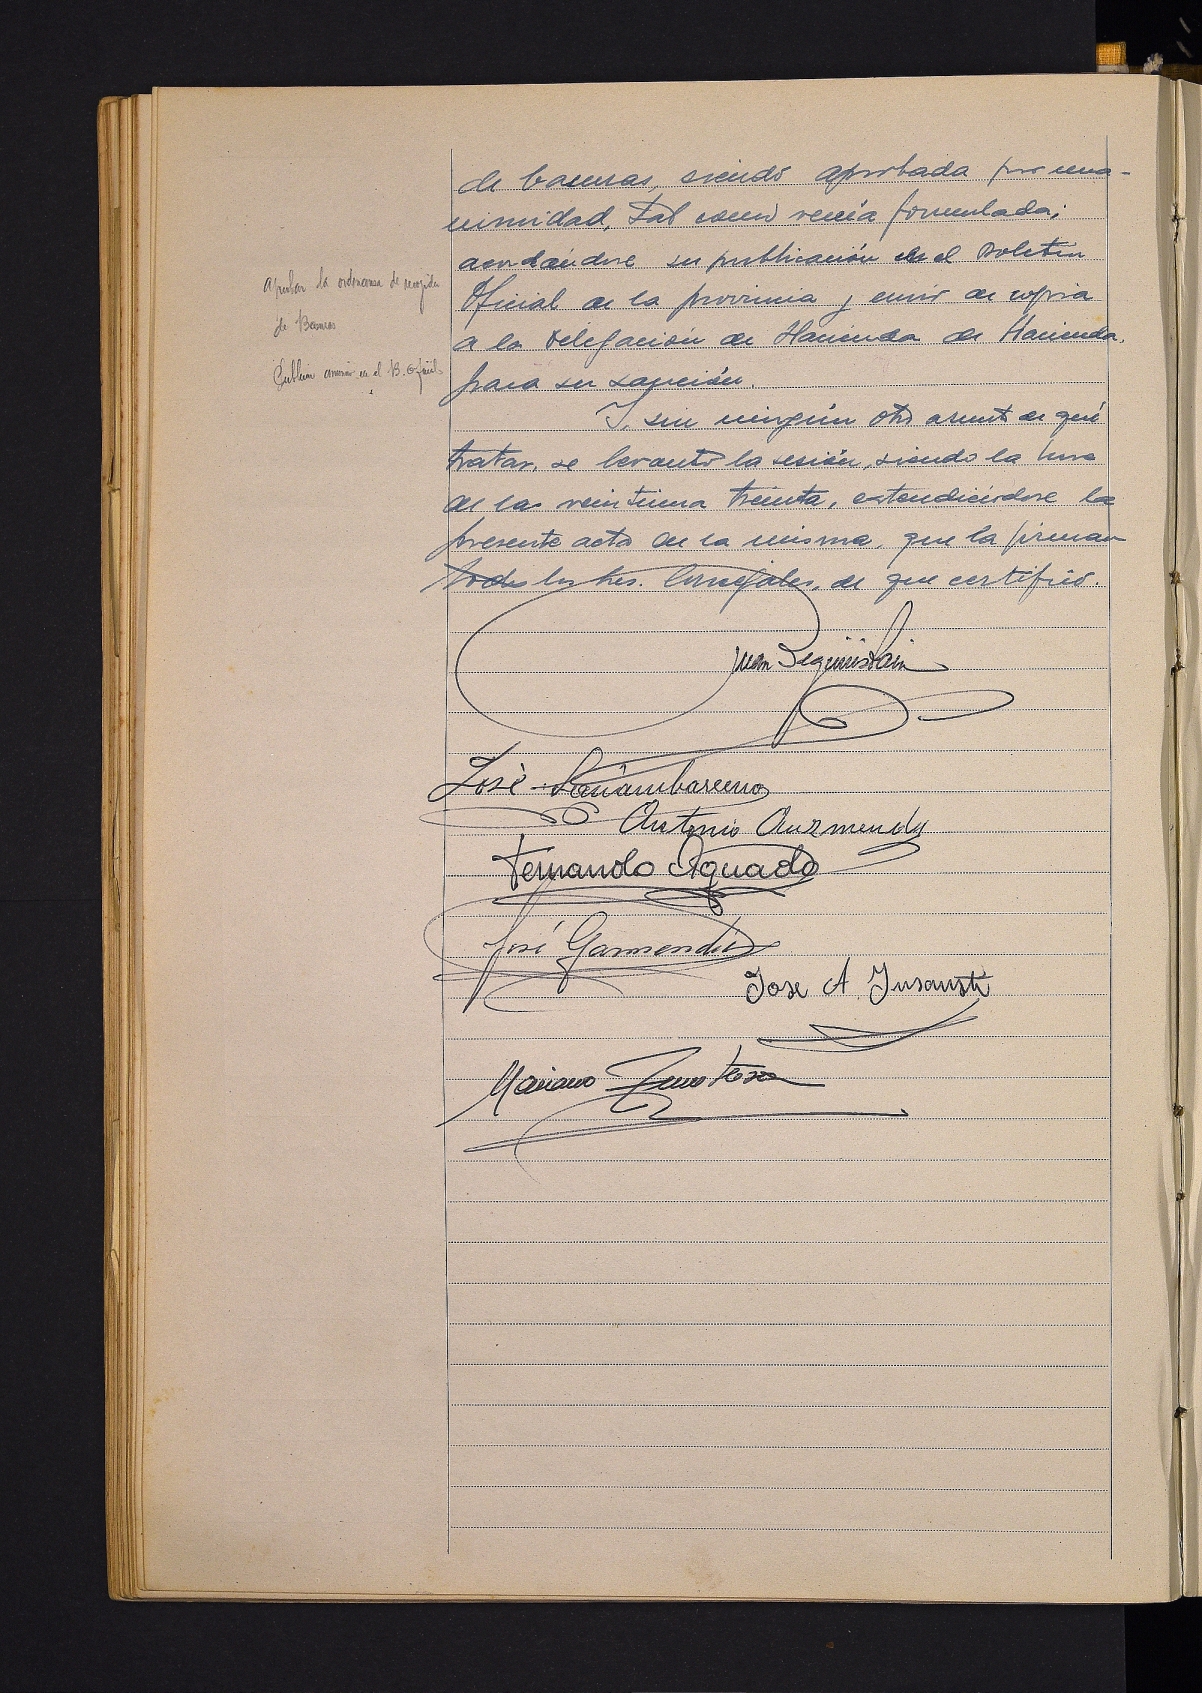 de basuras, siendo aprobada por una-
nimidad, tal como venía formulada;
acordándose su publicación en el Boletín
Oficial de la provincia y envío de copia
a la Delegación de Hacienda de Hacienda,
para su sanción.
Y, sin ningún otro asunto de qué
tratar, se levantó la sesión, siendo la hora
de las veintiuna treinta, extendiéndose la
presente acta de la misma, que la firman
todos los Sres. Concejales, de que certifico.
Aprobar la ordenanza de recogida
de Basuras
Publicar anuncio en el B. Oficial
Juan Beguiristain
José
Antonio Auzmendi
Fernando Aguado
José Garmendia
Jose A. Insausti
Mariano